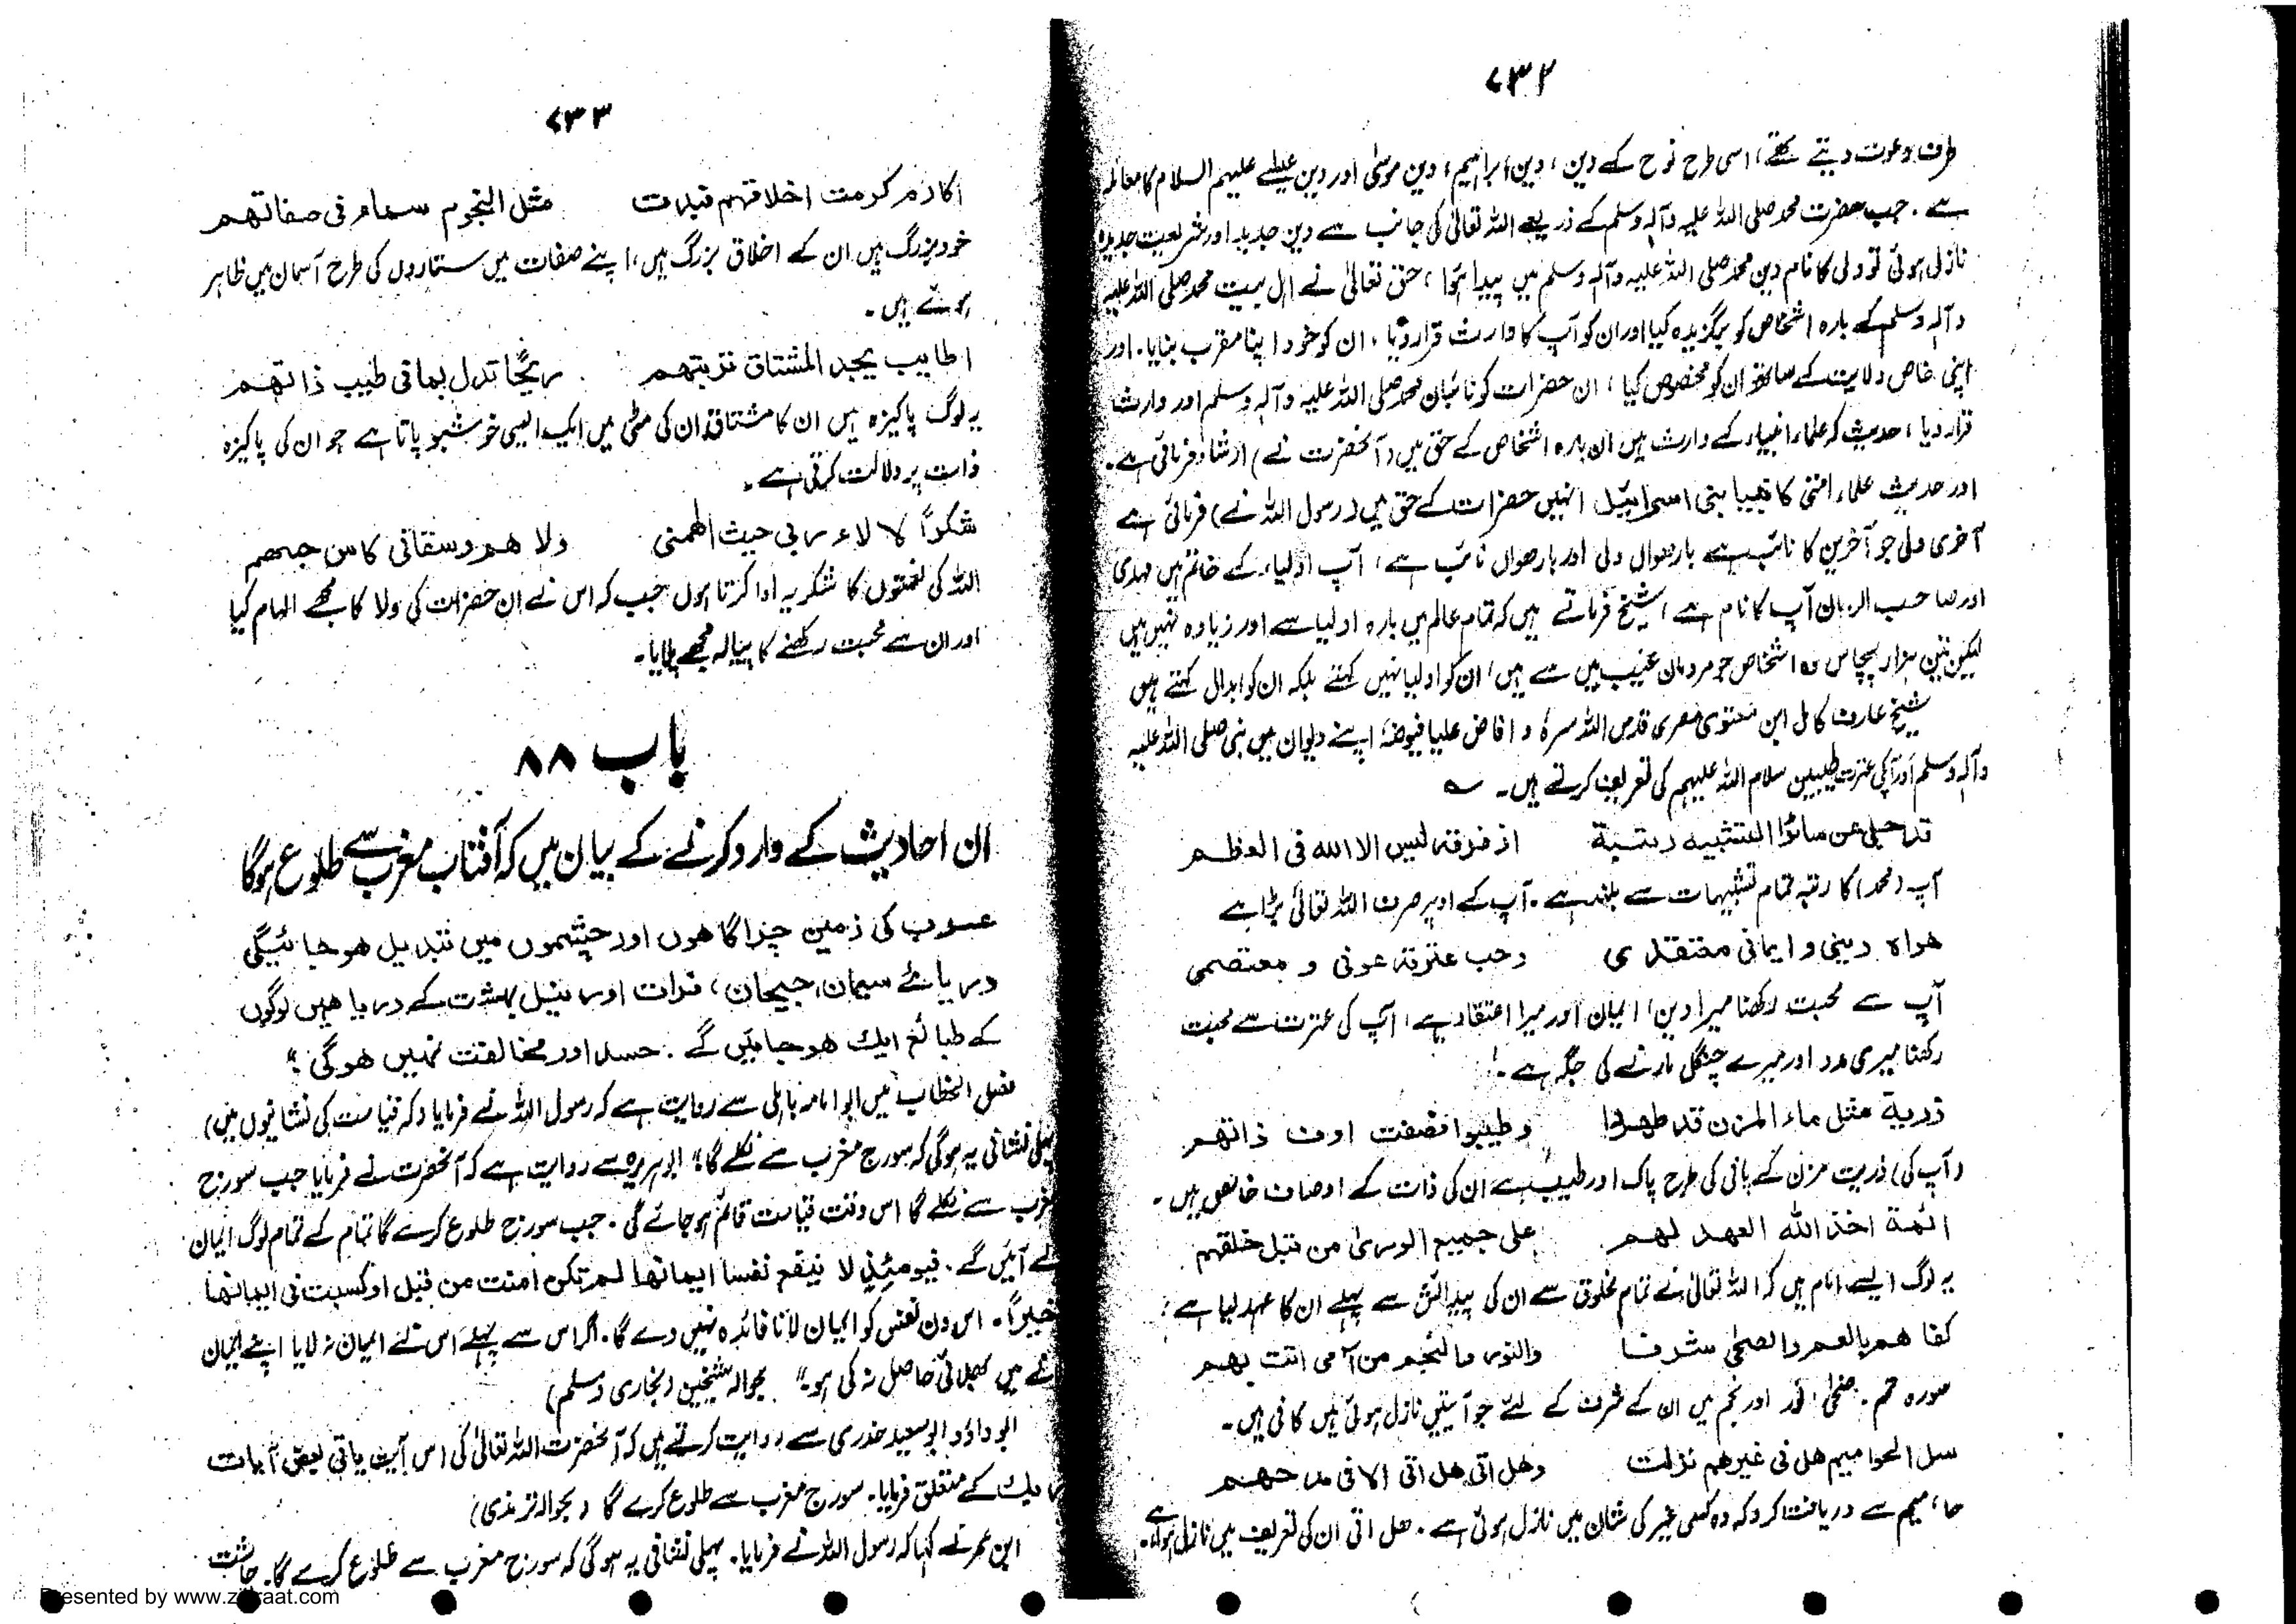 ۷۳۲
طرف دعوت دیتے تھے، اسی طرح نوح کے دین، دین ابراہیم، دین موسیٰ اور دین عیسٰے علیہم السلام کا معاملہ
ہے۔ جب حضرت محمد صلی اللہ علیہ وآلہ وسلم کے ذریعے اللہ تعالیٰ کی جانب سے دین جدید اور شریعت جدیدہ
نازل ہوئی تو ولی کا نام دین محمد صلی اللہ علیہ وآلہ وسلم میں پیدا ہوا، حق تعالیٰ نے اہل بیت محمد صلی اللہ علیہ
وآلہ وسلم کے بارہ اشخاص کو برگزیدہ کیا اور ان کو آپ کا وارث قرار دیا، ان کو خود اپنا مقرب بنایا۔ اور
اپنی خاص ولایت کے ساتھ ان کو مخصوص کیا، ان حضرات کو نائبان محمد صلی اللہ علیہ وآلہ وسلم اور وارث
قرار دیا، حدیث کہ علماء انبیاء کے وارث ہیں ان بارہ اشخاص کے حق میں (آنحضرت نے) ارشاد فرمائی ہے۔
اور حدیث علماء امتی کانبیا بنی اسرائیل انہیں حضرات کے حق میں (رسول اللہ نے) فرمائی ہے
آخری ولی جو آخرین کا نائب ہے بارھواں ولی اور بارھواں نائب ہے، آپ اولیاء کے خاتم ہیں مہدی
اور صاحب الزمان آپ کا نام ہے، شیخ فرماتے ہیں کہ تمام عالم میں بارہ اولیا سے اور زیادہ نہیں ہیں
لیکن تین ہزار پچاس وہ اشخاص جو مردمان غیب میں سے ہیں، ان کو اولیا نہیں کہتے بلکہ ان کو ابدال کہتے ہیں
شیخ عارف کامل ابن معتوی مصری قدس اللہ سرہ و افاض علینا فیوضہ اپنے دیوان میں نبی صلی اللہ علیہ
وآلہ وسلم اور آپکی عترت طیبین سلام اللہ علیہم کی تعریف کرتے ہیں۔ ؎
قد جلی عن سائر التشبیہ رتبة اذ فوقہ لیس الا اللہ فی العظم
آپ (محمد) کا رتبہ تمام تشبیہات سے بلند ہے۔ آپ کے اوپر صرف اللہ تعالیٰ بڑا ہے
ھواہ دینی و ایمانی معتقدی وحب عترتہ عونی و معتصمی
آپ سے محبت رکھنا میرا دین، ایمان اور میرا اعتقاد ہے، آپ کی عترت سے محبت
رکھنا میری مدد اور میرے چنگل مارنے کی جگہ ہے۔
ذریة مثل ماء المزن قد طھروا وطیبوا فصفت اوصاف ذاتھم
(آپ کی) ذریت مزن کے پانی کی طرح پاک اور طیب ہے ان کی ذات کے اوصاف خالص ہیں۔
ائمة اخذ اللہ العھد لھم علی جمیع الورٰی من قبل خلقھم
یہ لوگ ایسے امام ہیں کہ اللہ تعالیٰ نے تمام مخلوق سے ان کی پیدائش سے پہلے ان کا عہد لیا ہے:
کفا ھم بالعم والضحٰی شرفا والنور والنجم من آی اتت بھم
سورہ عم۔ ضحیٰ، نور اور نجم میں ان کے شرف کے لئے جو آیتیں نازل ہوئی ہیں کافی ہیں۔
سل الحوامیم ھل فی غیرھم نزلت وھل اتی ھل اتی الا فی مدحھم
حا، میم سے دریافت کرو کہ وہ کسی غیر کی شان میں نازل ہوئی ہے۔ ھل اتی ان کی تعریف میں نازل ہوا ہے۔
۷۳۳
اکارم کرمت اخلاقھم فبدت مثل النجوم سماء فی صفاتھم
خود بزرگ ہیں ان کے اخلاق بزرگ ہیں، اپنے صفات میں ستاروں کی طرح آسمان میں ظاہر
ہوتے ہیں۔
اطایب یجد المشتاق تربتھم ریحًا تدل بما فی طیب ذاتھم
یہ لوگ پاکیزہ ہیں ان کا مشتاق ان کی مٹی میں ایک ایسی خوشبو پاتا ہے جو ان کی پاکیزہ
ذات پر دلالت کرتی ہے۔
شکرًا لالاء ربی حیث الھمنی ولا ھم وسقانی کاس حبھم
اللہ کی نعمتوں کا شکریہ ادا کرتا ہوں جب کہ اس نے ان حضرات کی ولا کا مجھے الہام کیا
اور ان سے محبت رکھنے کا پیالہ مجھے پلایا۔
باب ۸۸
ان احادیث کے وارد کرنے کے بیان میں کہ آفتاب مغرب سے طلوع ہوگا
عرب کی زمین چراگاھوں اور چشموں میں تبدیل ھو جائیگی
دریائے سیحان، جیحان، فرات اور نیل بہشت کے دریا ھیں لوگوں
کے طبائع ایک ھو جائیں گے۔ حسد اور مخالفت نہیں ھوگی“
فصل الخطاب میں ابو امامہ باہلی سے روایت ہے کہ رسول اللہ نے فرمایا (کہ قیامت کی نشانیوں میں)
پہلی نشانی یہ ہوگی کہ سورج مغرب سے نکلے گا“ ابوہریرہ سے روایت ہے کہ آنحضرت نے فرمایا جب سورج
مغرب سے نکلے گا اس وقت قیامت قائم ہو جائے گی۔ جب سورج طلوع کرے گا تمام کے تمام لوگ ایمان
لے آئیں گے۔ فیومئذٍ لا ینفع نفسا ایمانھا لم تکن امنت من قبل او کسبت فی ایمانھا
خیرًا۔ اس دن نفس کو ایمان لانا فائدہ نہیں دے گا۔ اگر اس سے پہلے اس نے ایمان نہ لایا اپنے ایمان
میں بھلائی حاصل نہ کی ہو۔“ بحوالہ شیخین (بخاری و مسلم)
ابوداؤد ابوسعید خدری سے روایت کرتے ہیں کہ آنحضرت اللہ تعالیٰ کی اس آیت یاتی بعض آیات
ربک کے متعلق فرمایا۔ سورج مغرب سے طلوع کرے گا (بحوالہ ترمذی)
ابن عمر نے کہا کہ رسول اللہ نے فرمایا۔ پہلی نشانی یہ ہوگی کہ سورج مغرب سے طلوع کرے گا۔ چاشت
Presented by www.ziaraat.com